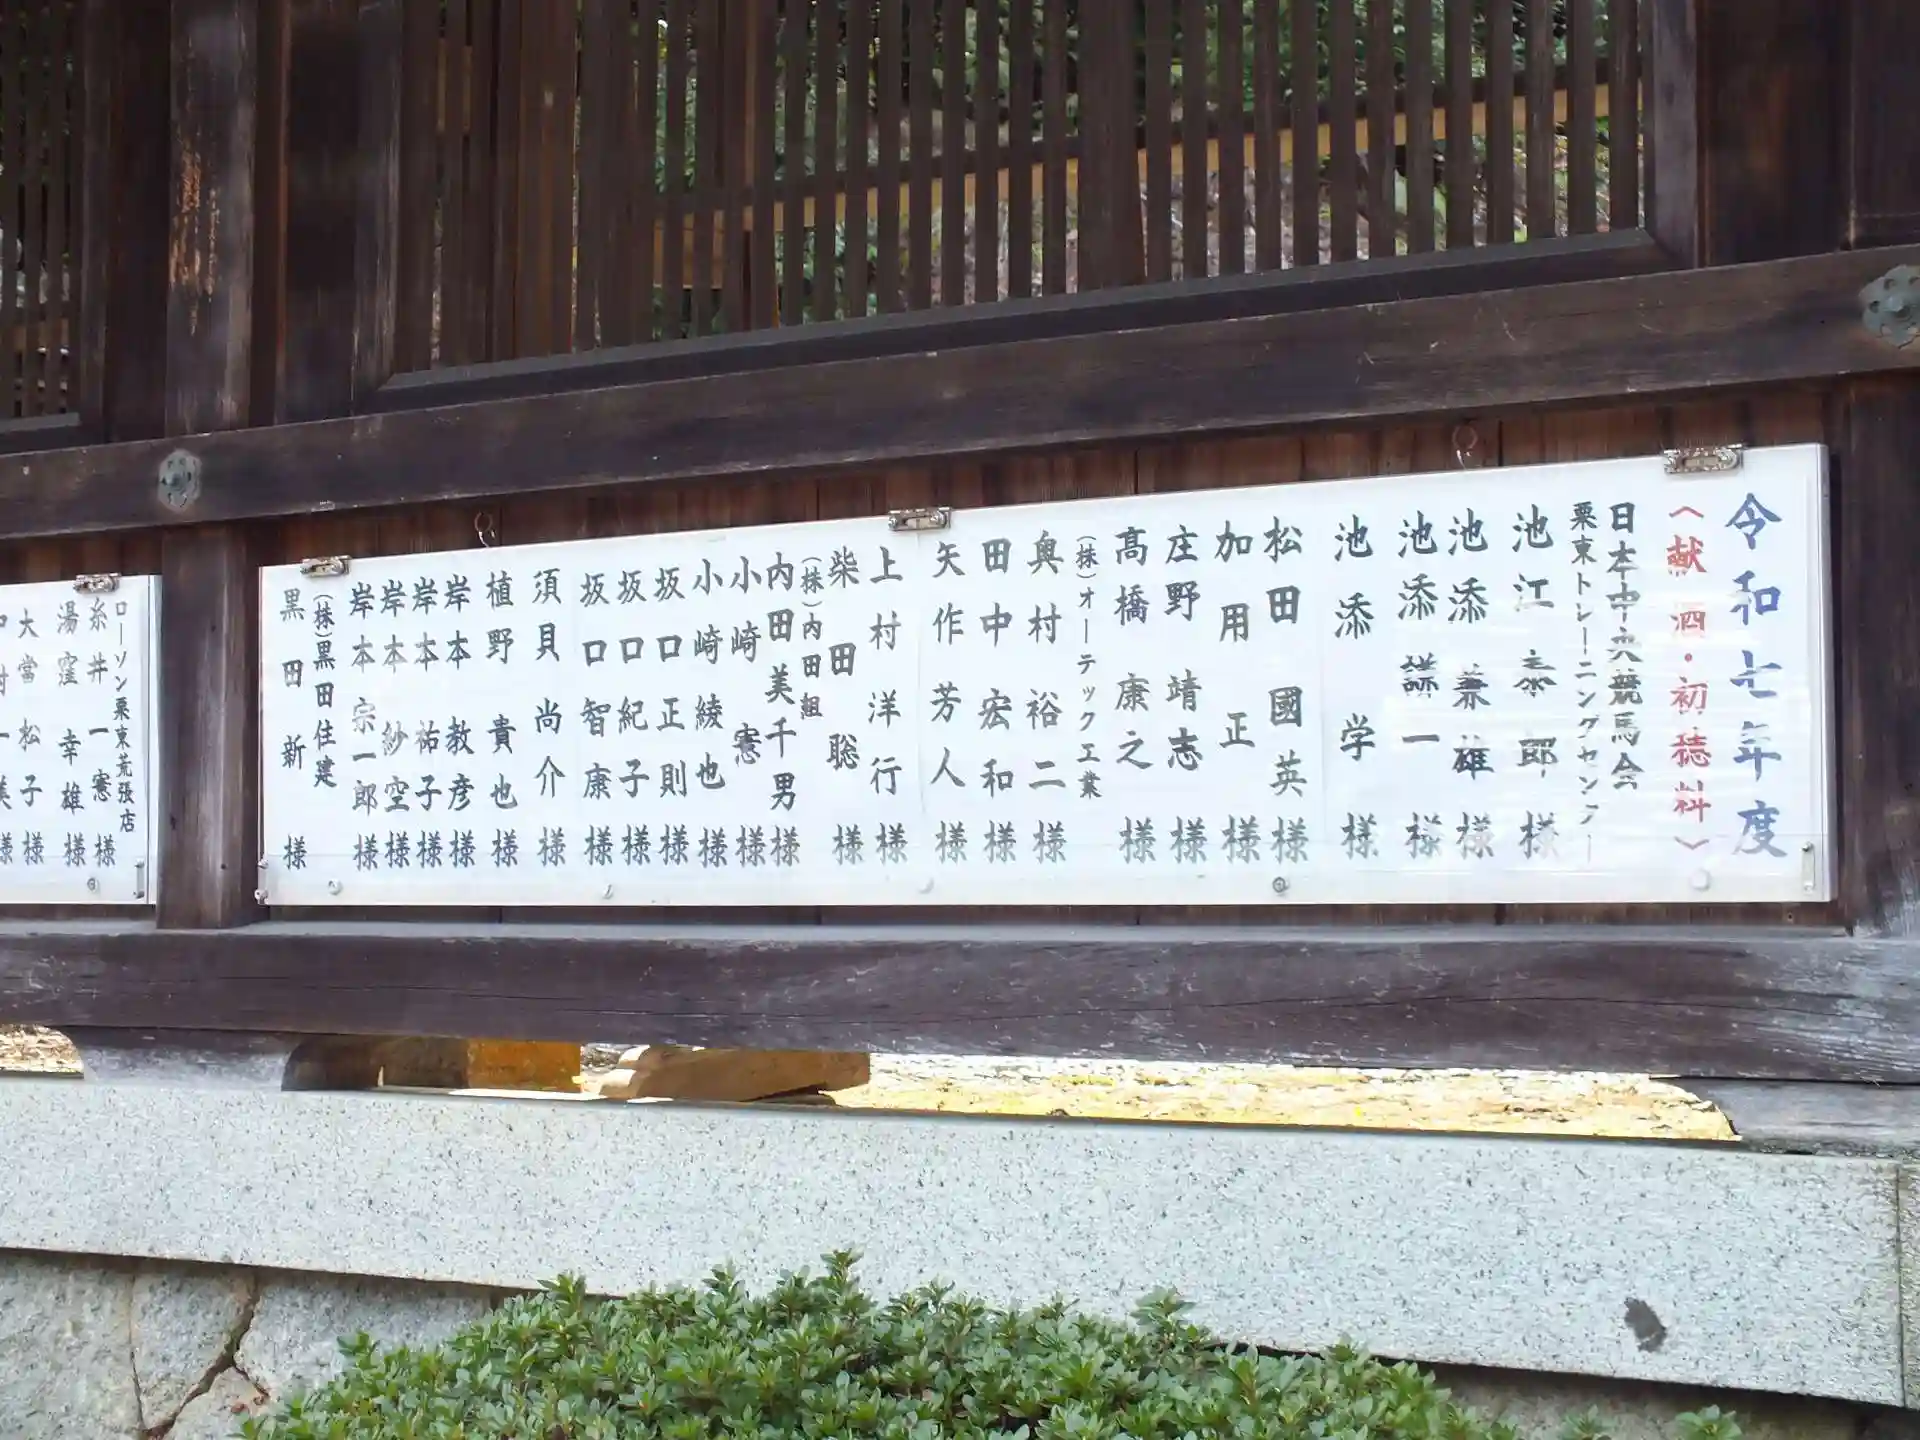 令和七年度
〈献酒・初穂料〉
日本中央競馬会
栗東トレーニングセンター
池江泰郎 様
池添兼雄 様
池添謙一 様
池添学 様
松田國英 様
加用正 様
庄野靖志 様
髙橋康之 様
(株)オーテック工業
奥村裕二 様
田中宏和 様
矢作芳人 様
上村洋行 様
柴田聡 様
(株)内田組
内田美千男 様
小崎憲 様
小崎綾也 様
坂口正則 様
坂口紀子 様
坂口智康 様
須貝尚介 様
植野貴也 様
岸本教彦 様
岸本祐子 様
岸本紗空 様
岸本宗一郎 様
(株)黒田住建
黒田新 様
ローソン栗東荒張店
糸井一憲 様
湯窪幸雄 様
大當松子 様